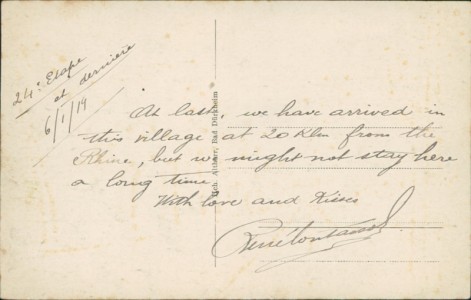 24e Etape
et dernière
6/1/19
At last, we have arrived in
this village at 20 Klm from the
Rhine, but we might not stay here
a long time
With love and Kisses
René
Bad Dürkheim